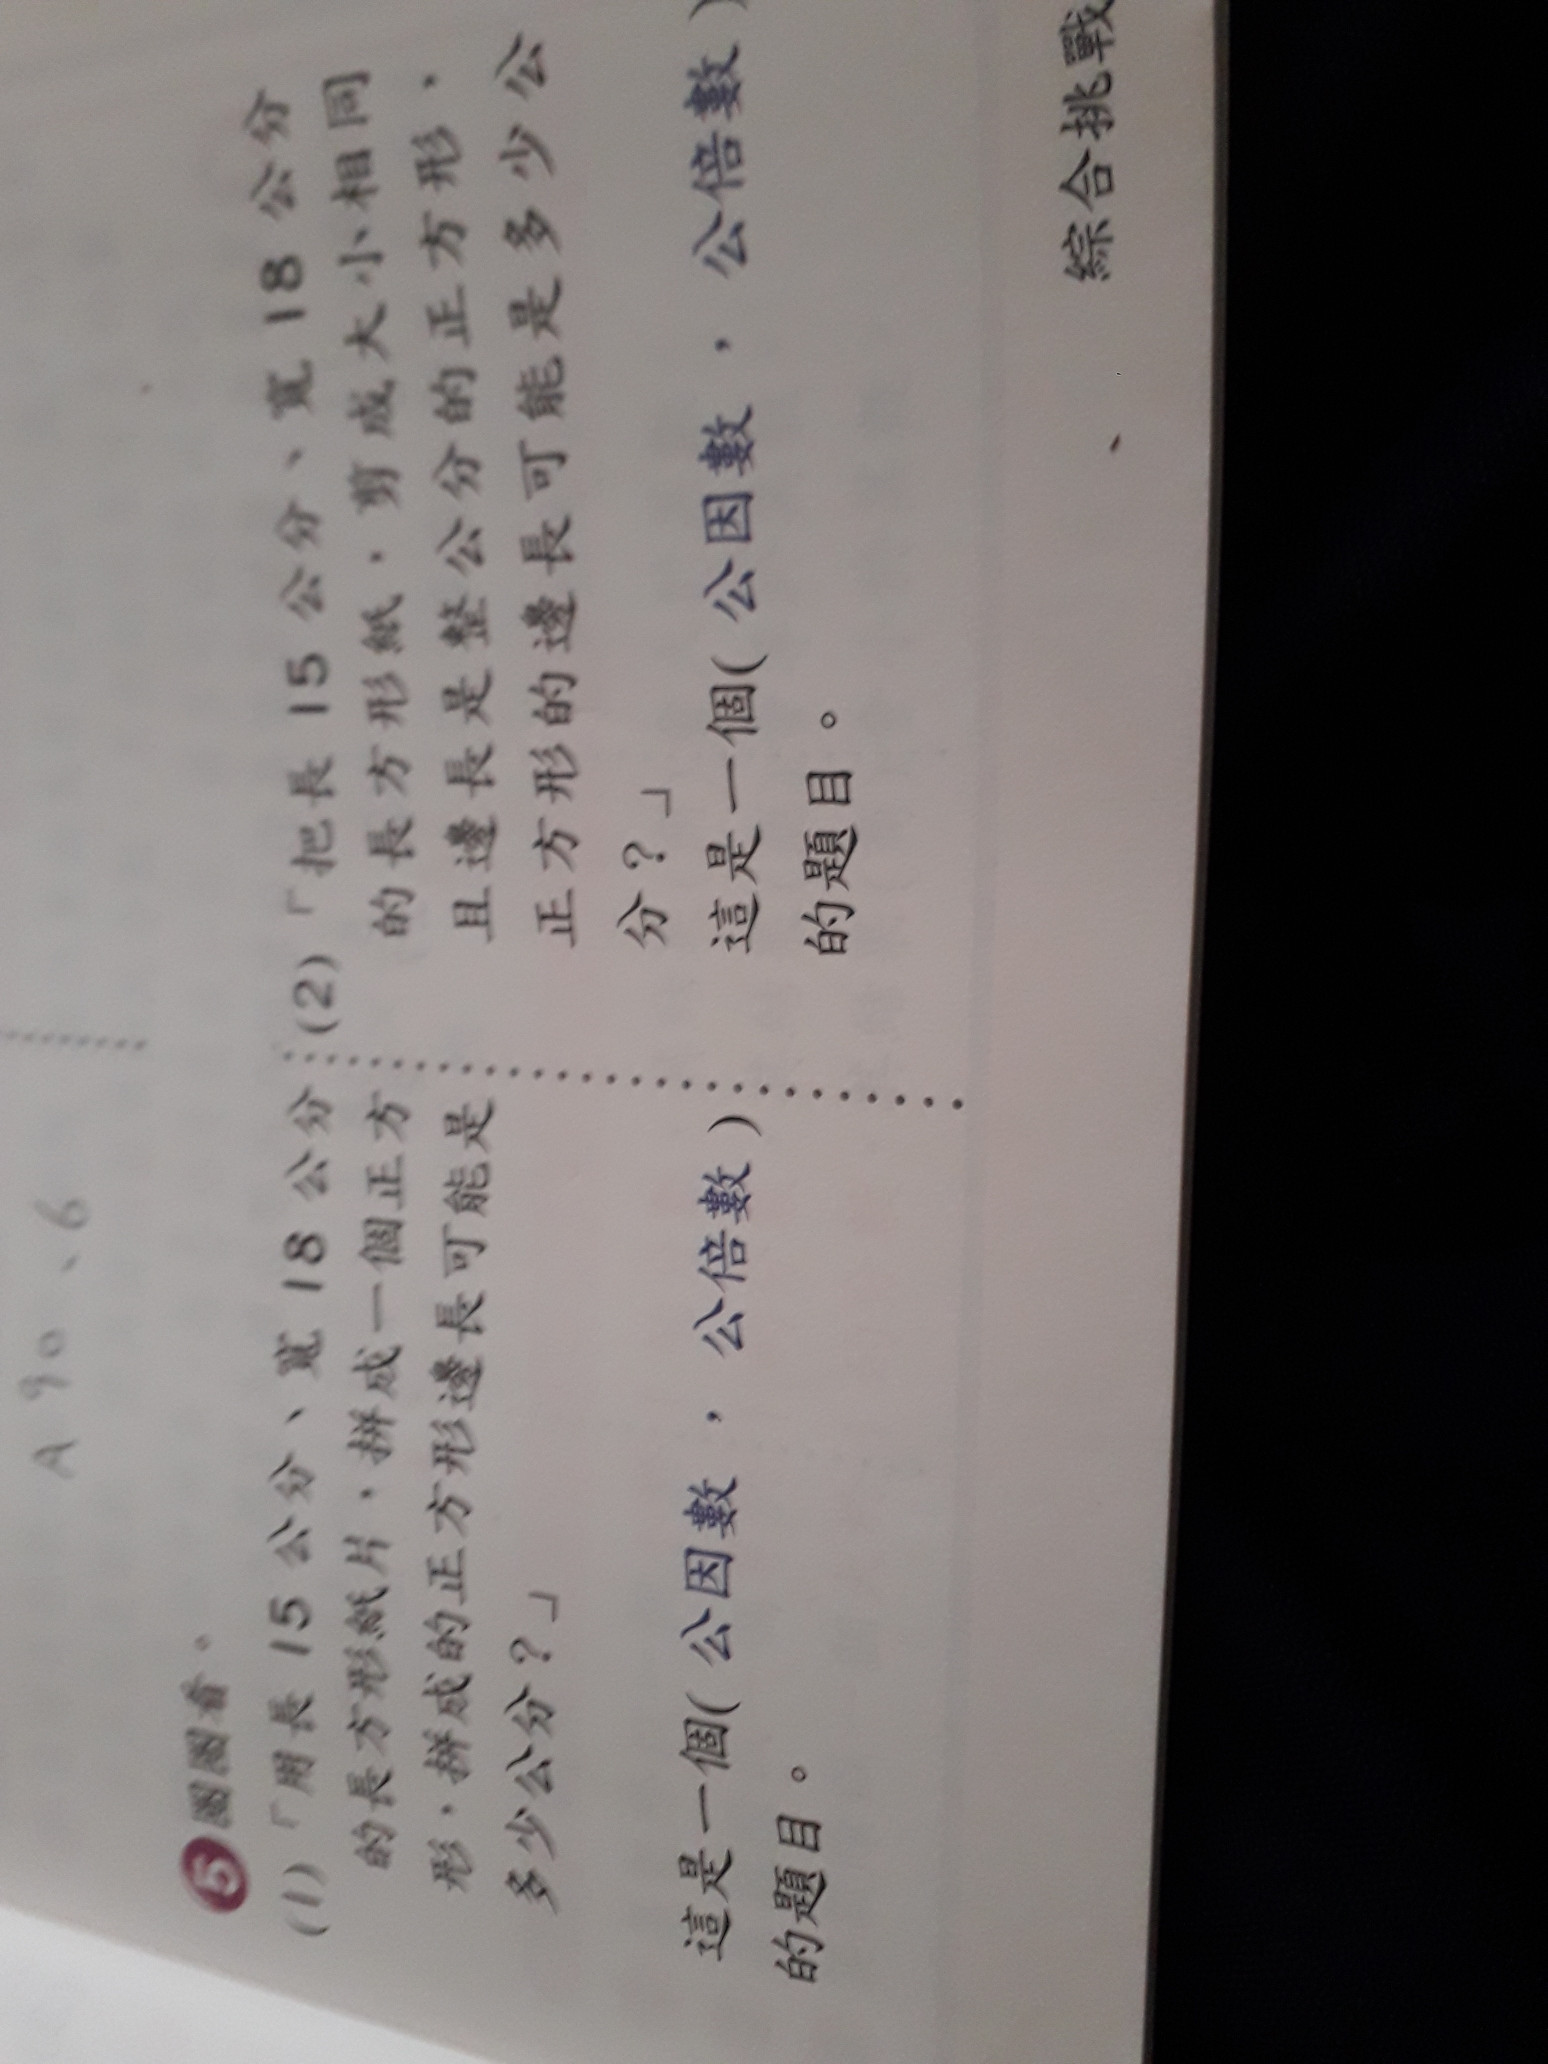 A 90、6
5 圈圈看。
(1)「用長 15 公分、寬 18 公分
的長方形紙片，拼成一個正方
形，拼成的正方形邊長可能是
多少公分？」
這是一個( 公因數 ， 公倍數 )
的題目。
(2)「把長 15 公分、寬 18 公分
的長方形紙，剪成大小相同
且邊長是整公分的正方形，
正方形的邊長可能是多少公
分？」
這是一個( 公因數 ， 公倍數 )
的題目。
綜合挑戰